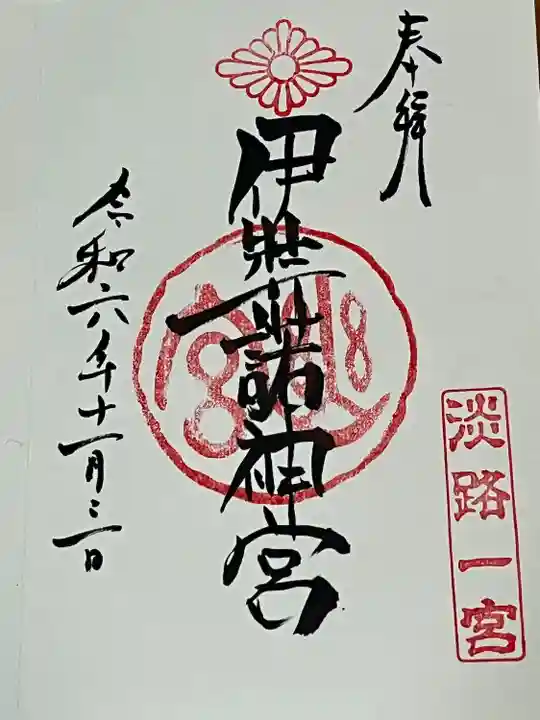 奉拝
伊弉諾神宮
令和六年十一月三日
淡路一宮